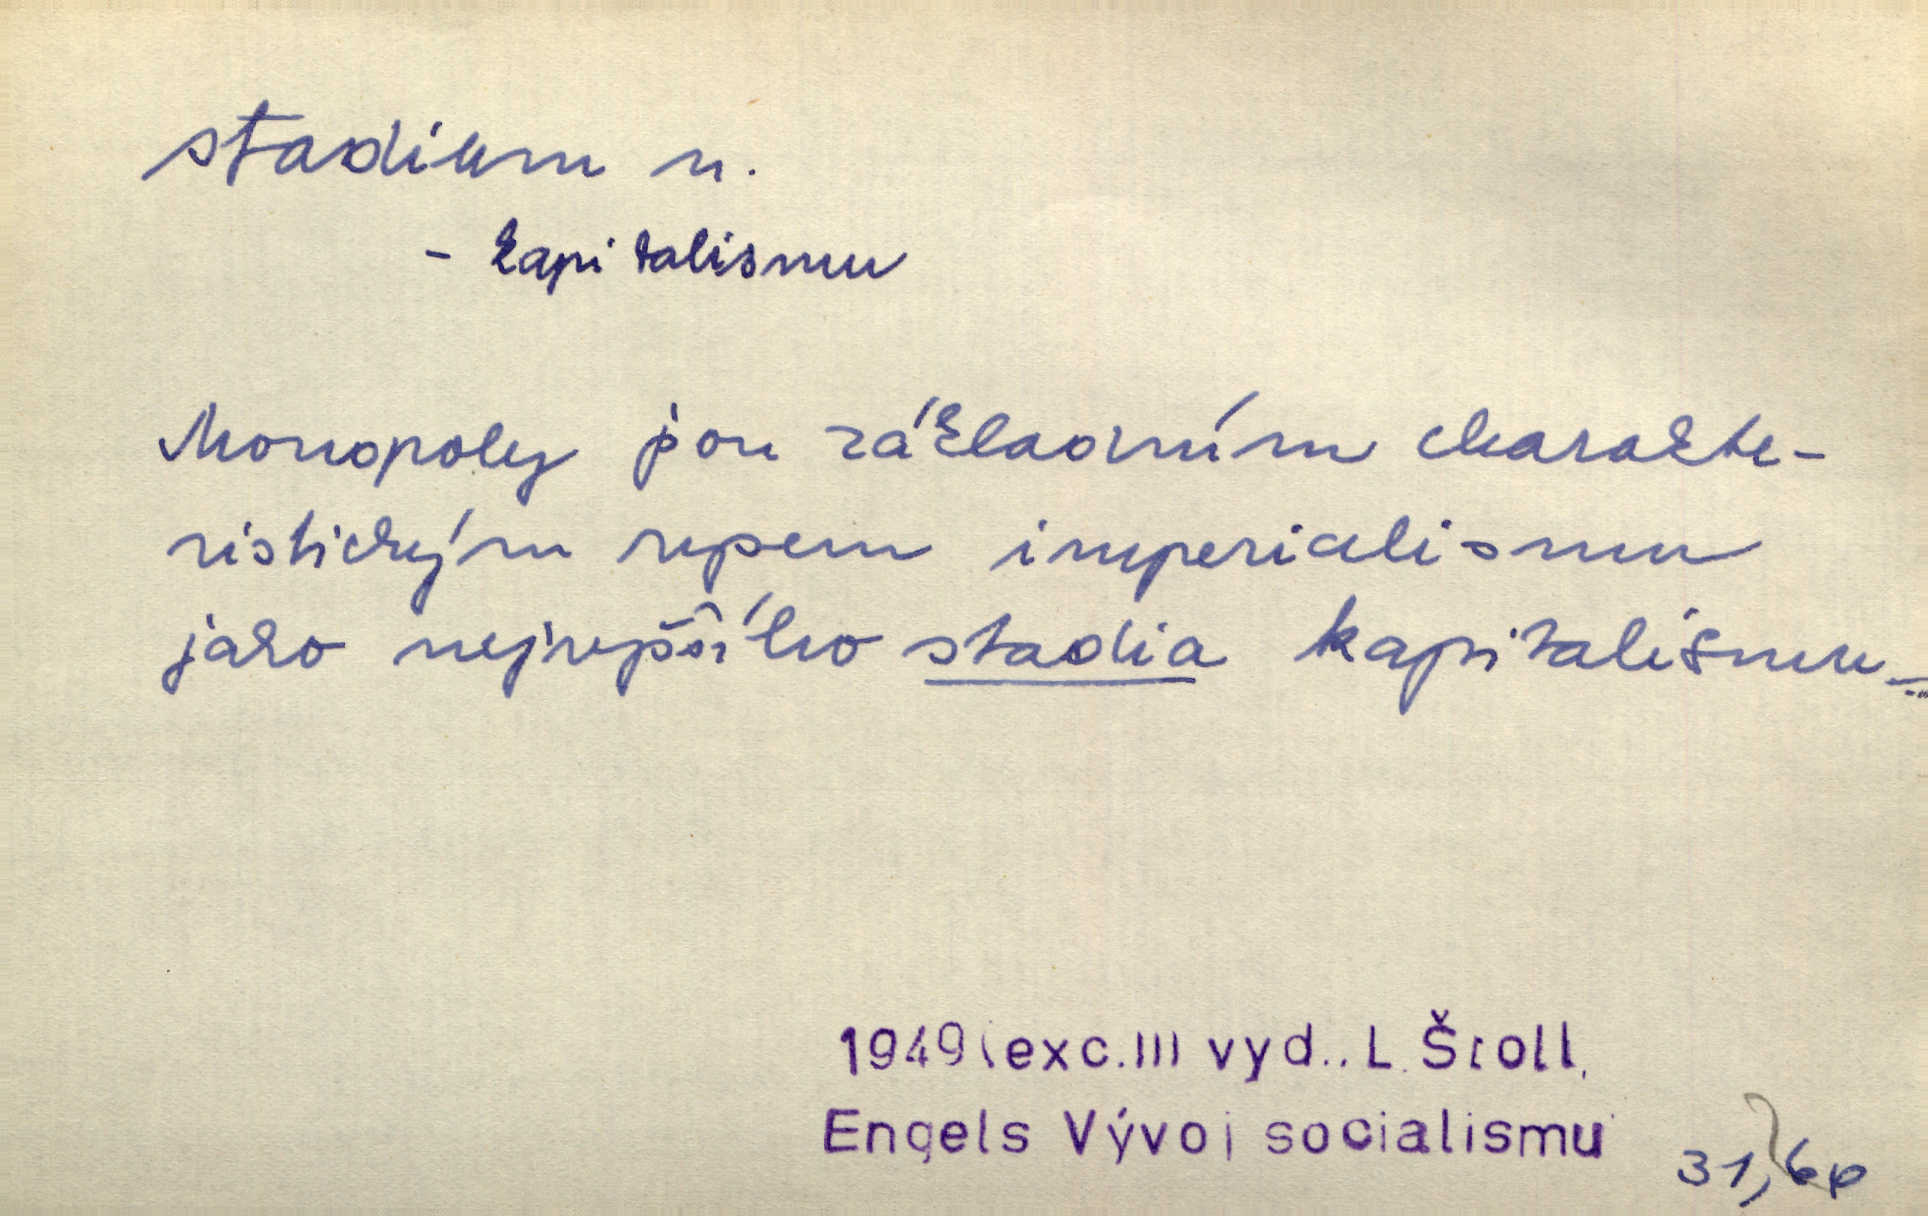 stadium n.
- kapitalismu
Monopoly jsou základním charakte-
ristickým rysem imperialismu
jako nejvyššího stadia kapitalismu
1949 (exc. III vyd., L. Štoll,
Engels Vývoj socialismu
31,